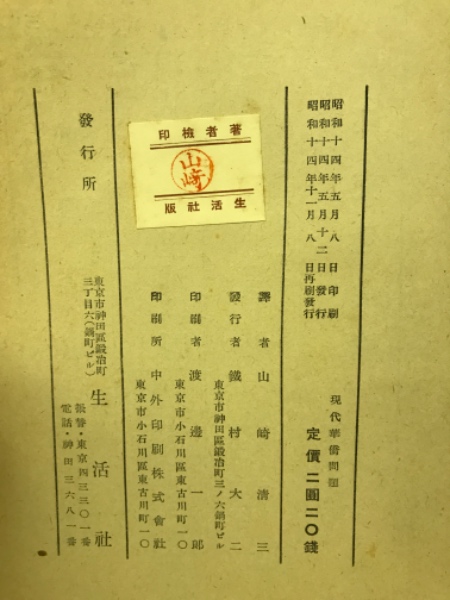 昭和十四年五月八日印刷
昭和十四年五月十二日發行
昭和十四年十一月八日再刷發行
現代華僑問題
定價二圓二〇錢
譯者 山崎清三
發行者 鐵村大二
東京市神田區鍛冶町三ノ六鍋町ビル
印刷者 渡邊一郎
東京市小石川區東古川町一〇
印刷所 中外印刷株式會社
東京市小石川區東古川町一〇
著者檢印
山崎
生活社版
發行所
東京市神田區鍛冶町
三丁目六(鍋町ビル)
生活社
振替・東京四三三〇一番
電話・神田三六八一番